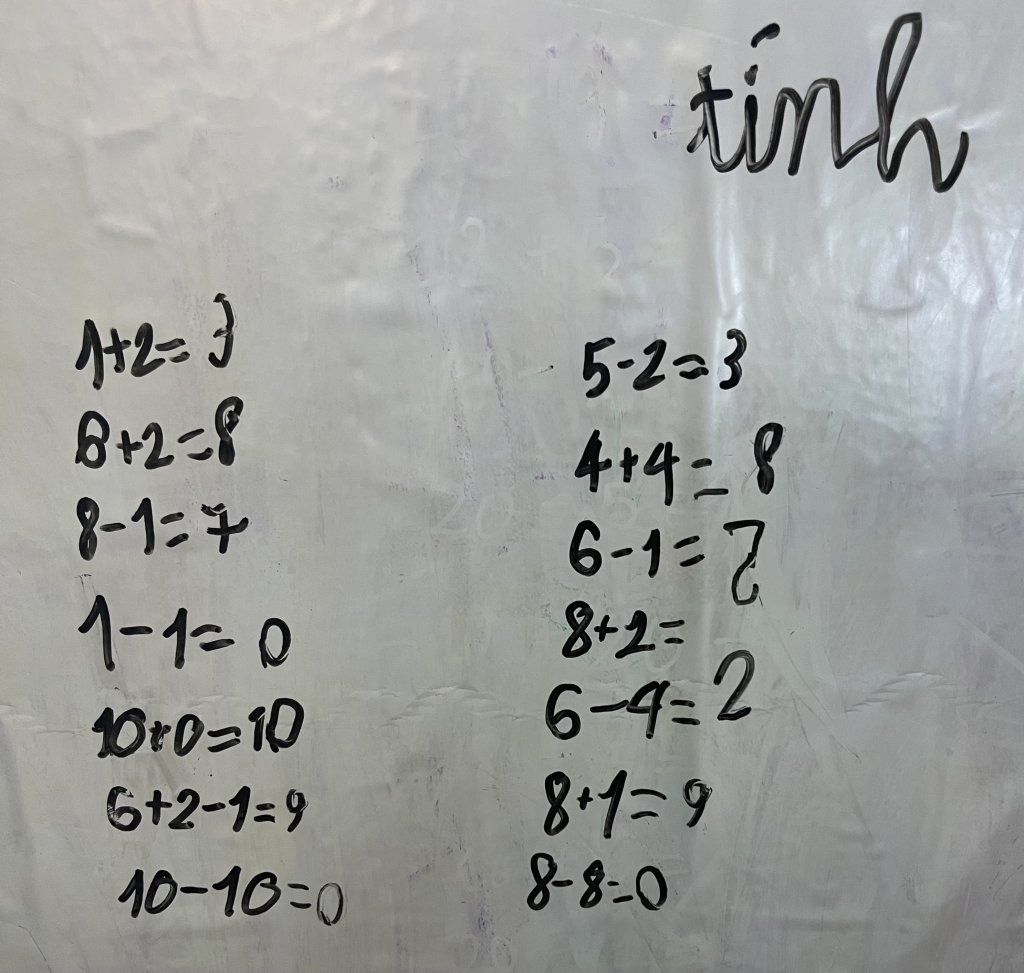 tính
1+2=3
6+2=8
8-1=7
1-1=0
10+0=10
6+2-1=9
10-10=0
5-2=3
4+4=8
6-1=
8+2=
6-4=2
8+1=9
8-8=0